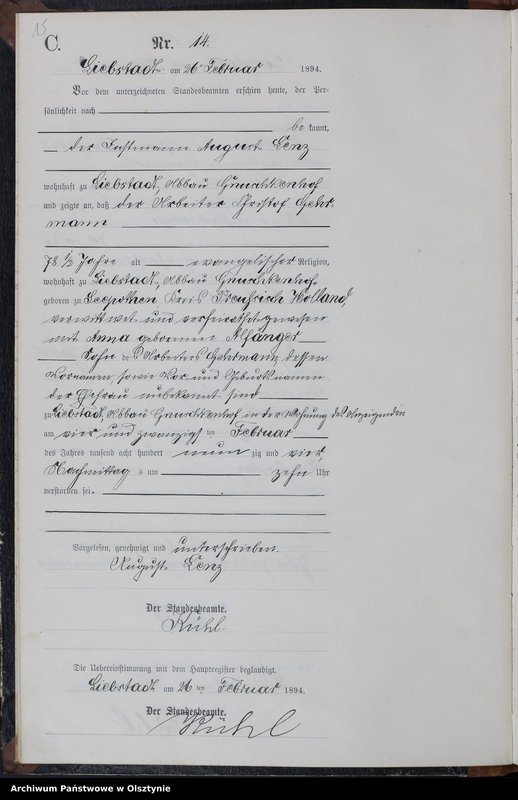 15
C.
Nr. 14.
Liebstadt am 26 Februar 1894.
Vor dem unterzeichneten Standesbeamten erschien heute, der Per-
sönlichkeit nach
be kannt,
der Instmann August Lenz
wohnhaft zu Liebstadt, Abbau
und zeigte an, daß der Arbeiter Christof
mann
78 1/2 Jahre alt evangelischer Religion,
wohnhaft zu Liebstadt, Abbau
geboren zu Kreis Preußisch Holland,
verwittwet und verheirathet gewesen
mit Anna geborenen
Sohn des Arbeiters dessen
Vornamen, sowie Vor- und Geburtsnamen
der Ehefrau unbekannt sind
zu Liebstadt, Abbau in der Wohnung des Anzeigenden
am vier und zwanzigsten Februar
des Jahres tausend acht hundert neun zig und vier,
Nachmittag s um zehn Uhr
verstorben sei.
Vorgelesen, genehmigt und unterschrieben.
August Lenz
Der Standesbeamte.
Kühl.
Die Uebereinstimmung mit dem Hauptregister beglaubigt.
Liebstadt am 26 ten Februar 1894.
Der Standesbeamte.
Kühl
Archiwum Państwowe w Olsztynie